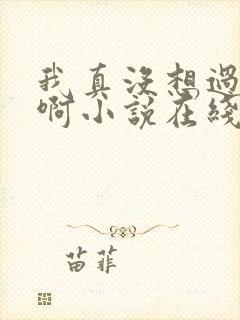 我真没想過
啊小説在綫
苗菲